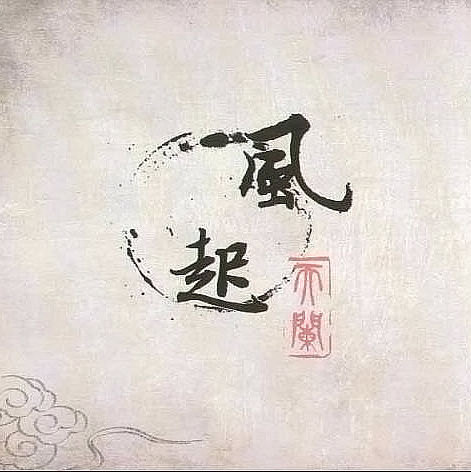 風起
天闌